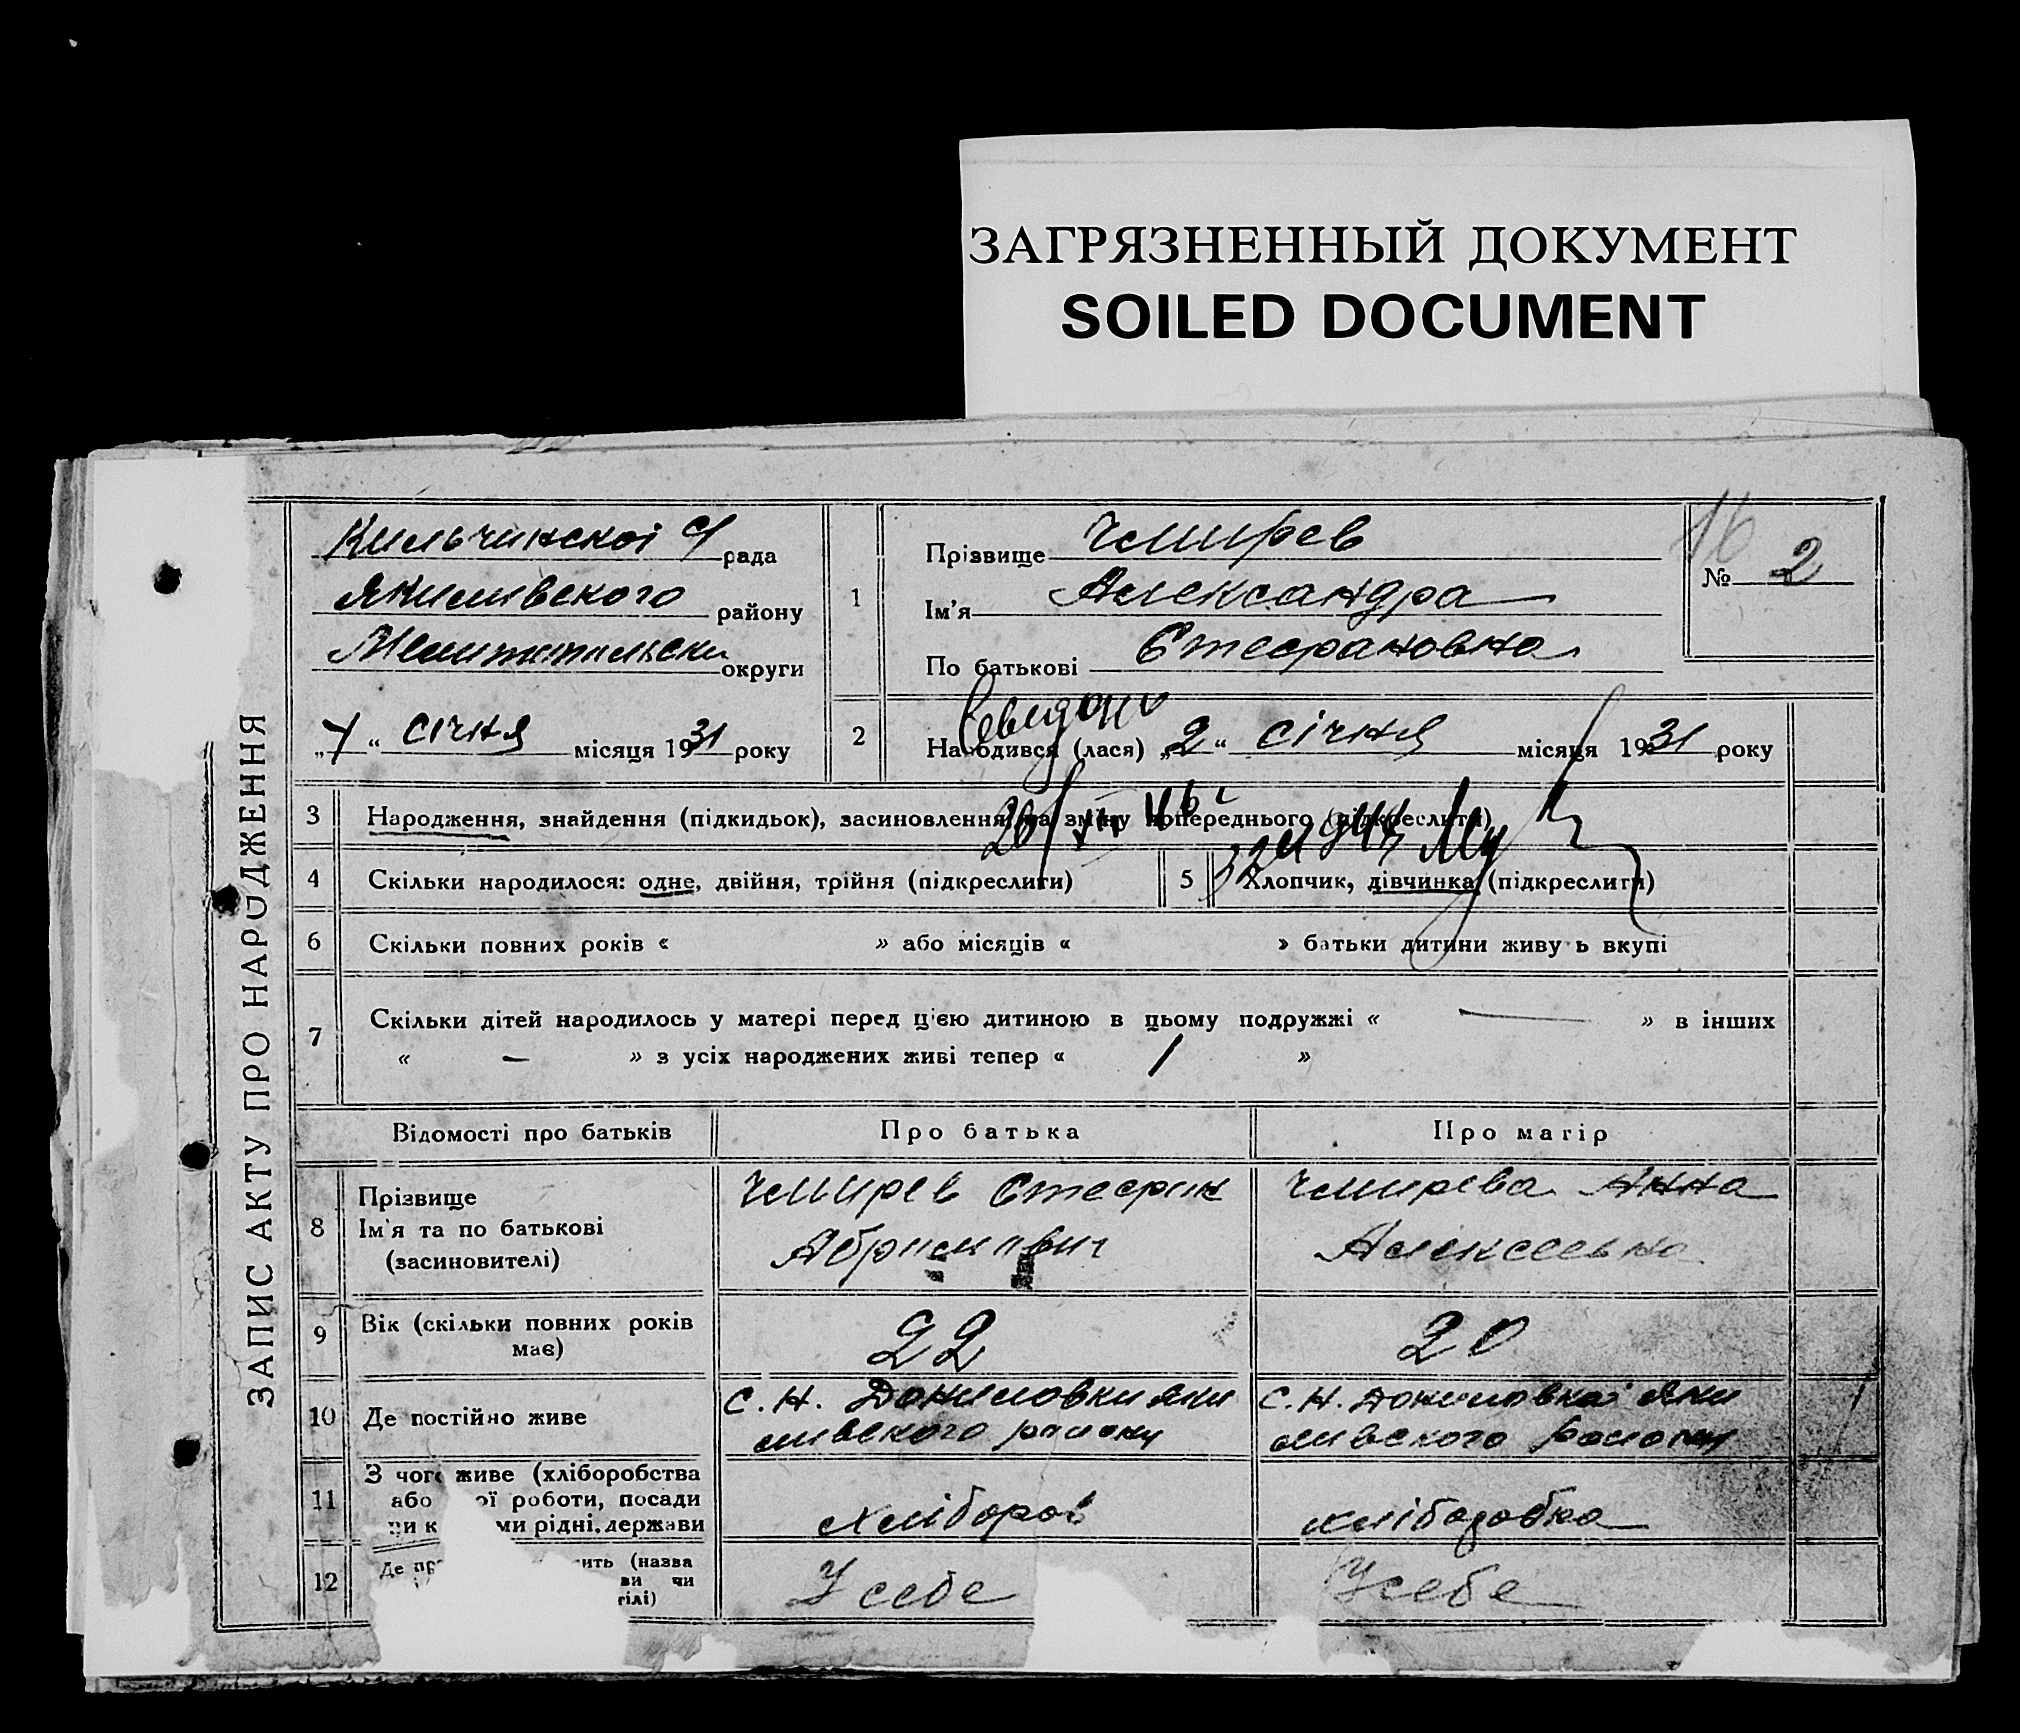 ЗАГРЯЗНЕННЫЙ ДОКУМЕНТ
SOILED DOCUMENT
ЗАПИС АКТУ ПРО НАРОДЖЕННЯ
рада
району
округи
„ “ січня місяця 1931 року
1
Прізвище Чмирев
Ім'я Александра
По батькові Стефановна
16
№ 2
2
Народився (лася) „2“ січня місяця 1931 року
3 Народження, знайдення (підкидьок), засиновлення та зміну попереднього (підкреслити)
4 Скільки народилося: одне, двійня, трійня (підкреслити)
5 Хлопчик, дівчинка (підкреслити)
6 Скільки повних років « » або місяців « » батьки дитини живуть вкупі
7 Скільки дітей народилось у матері перед цією дитиною в цьому подружжі « — » в інших
« — » з усіх народжених живі тепер « 1 »
Відомості про батьків
Про батька
Про матір
8 Прізвище
Ім'я та по батькові
(засиновителі)
Чмирев Стефан
Чмирева Анна
Алексеевна
9 Вік (скільки повних років
має)
22
20
10 Де постійно живе
с. Н. Даниловки Яки
мивского району
с. Н. Даниловкаі Яки
мивского району
11 З чого живе (хліборобства
або ої роботи, посади
чи к ми рідні, держави
хлібороб
хліборобка
12 Де пр ить (назва
ви чи
гілі)
У себе
У себе